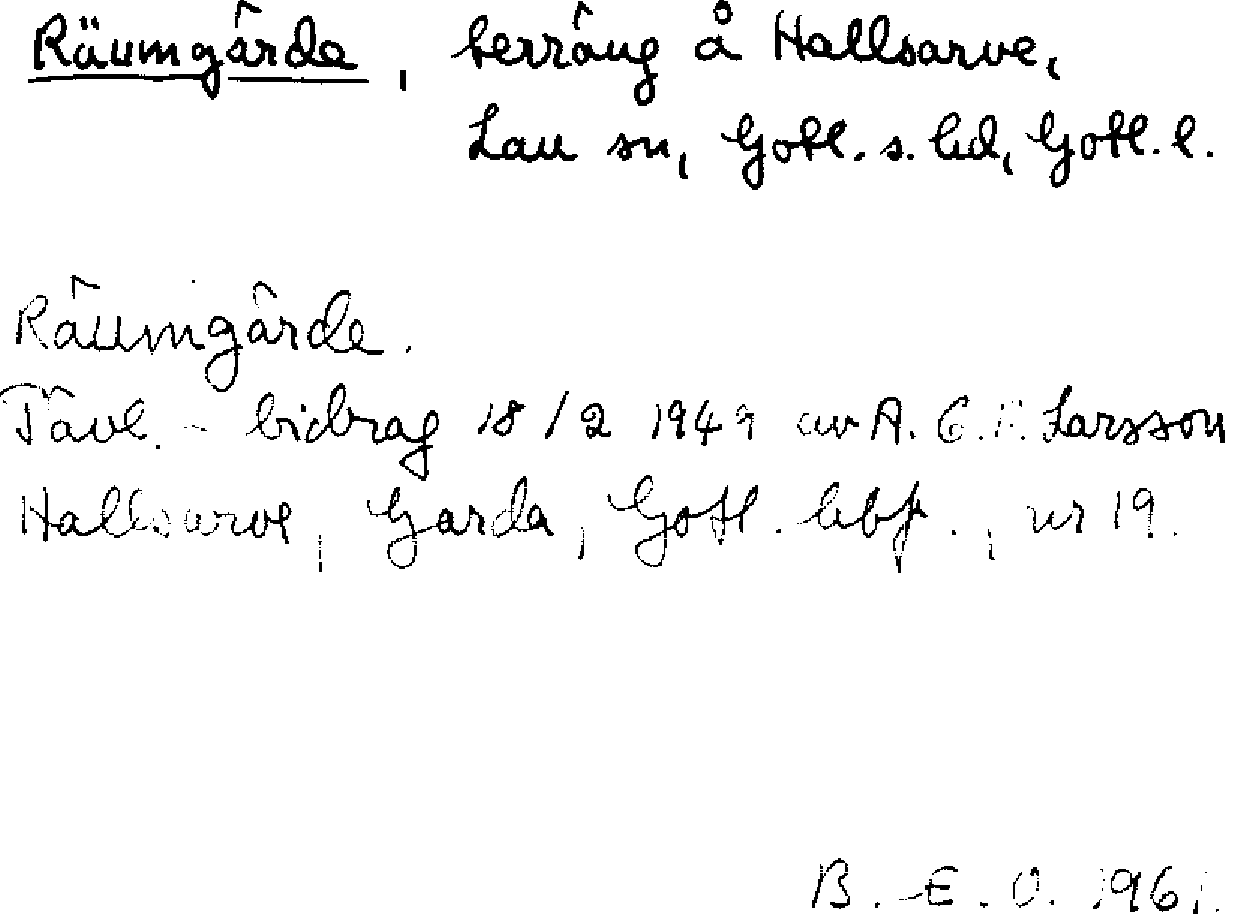 Räumgârda, terräng å Hallsarve,
Lau sn, Gotl. s. hd, Gotl. l.
Räumgârde.
Tävl. - bidrag 18/2 1949 av A. Larsson
Hallsarve, Garda, Gotl. , nr 19.
B. E. O. 1961.